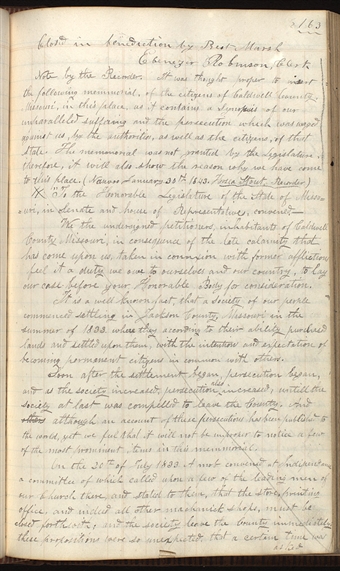 163
Closed in benediction by Bro. Marsh
Ebenezer Robinson, Clerk
Note by the Recorder. It was thought proper to insert
the following memmorial, of the citizens of Caldwell County
Missouri, in this place, as it contains a Synopsis of our
unparalleled suffering and the persecution which was waged
against us, by the authorities, as well as the citizens, of that
State. The memmorial was not granted by the Legislature.
therefore, it will also show the reason why we have come
to this place. (Nauvoo January 30th 1843. Hosea Stout, Recorder)
X "To the Honorable Legislature of the State of Misso-
uri, in Senate and house of Representatives, convened—
We the undersigned petitioners, inhabitants of Caldwell
County Missouri, in consequence of the late calamity that
has come upon us, taken in connexion with former afflictions
feel it a duty we owe to ourselves and our country, to lay
our case before your Honorable Body for consideration.
It is a well known fact, that a society of our people
commenced settling in Jackson County, Missouri in the
summer of 1833. where they according to their ability, purchased
lands and settled upon them, with the intention and expectation of
becoming permanent citizens in common with others.
Soon after the settlement began, persecution began,
and as the society increased, persecution also increased, untill the
society at last was compelled to leave the County. And
although an account of these persecutions has been published to
the world, yet we feel that it will not be improper to notice a few
of the most prominent, items in this memmorial.
On the 20th of July 1833. A mob convened at Independence
a committee of which called upon a few of the leading men of
our Church there and stated to them, that the store, printing
office, and indeed all other mechanick shops, must be
closed forthwith, and the society leave the County immediately
these propositions were so unexpected, that a certain time was
asked